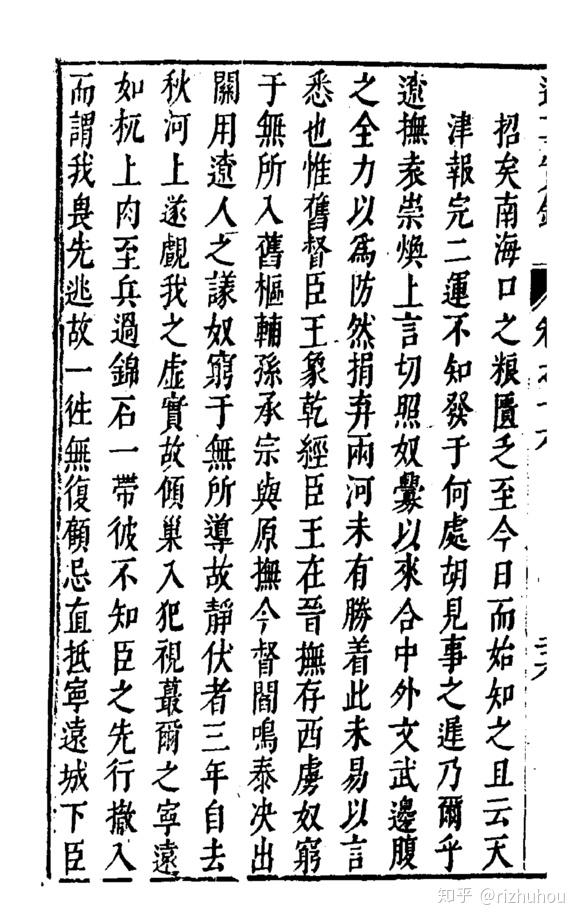 招矣南海口之粮匱乏至今日而始知之且云天
津報完二運不知發于何處胡見事之遲乃爾乎
遼撫袁崇煥上言切照奴釁以來合中外文武邊腹
之全力以爲防然捐弃兩河未有勝着此未易以言
悉也惟舊督臣王象乾經臣王在晉撫存西虜奴窮
于無所入舊樞輔孫承宗與原撫今督閻鳴泰决出
關用遼人之議奴窮于無所導故靜伏者三年自去
秋河上遂覷我之虛實故傾巢入犯視蕞爾之寧遠
如杌上肉至兵過錦石一帶彼不知臣之先行撤入
而謂我畏先逃故一徃無復顧忌直抵寧遠城下臣
知乎 @rizhuhou